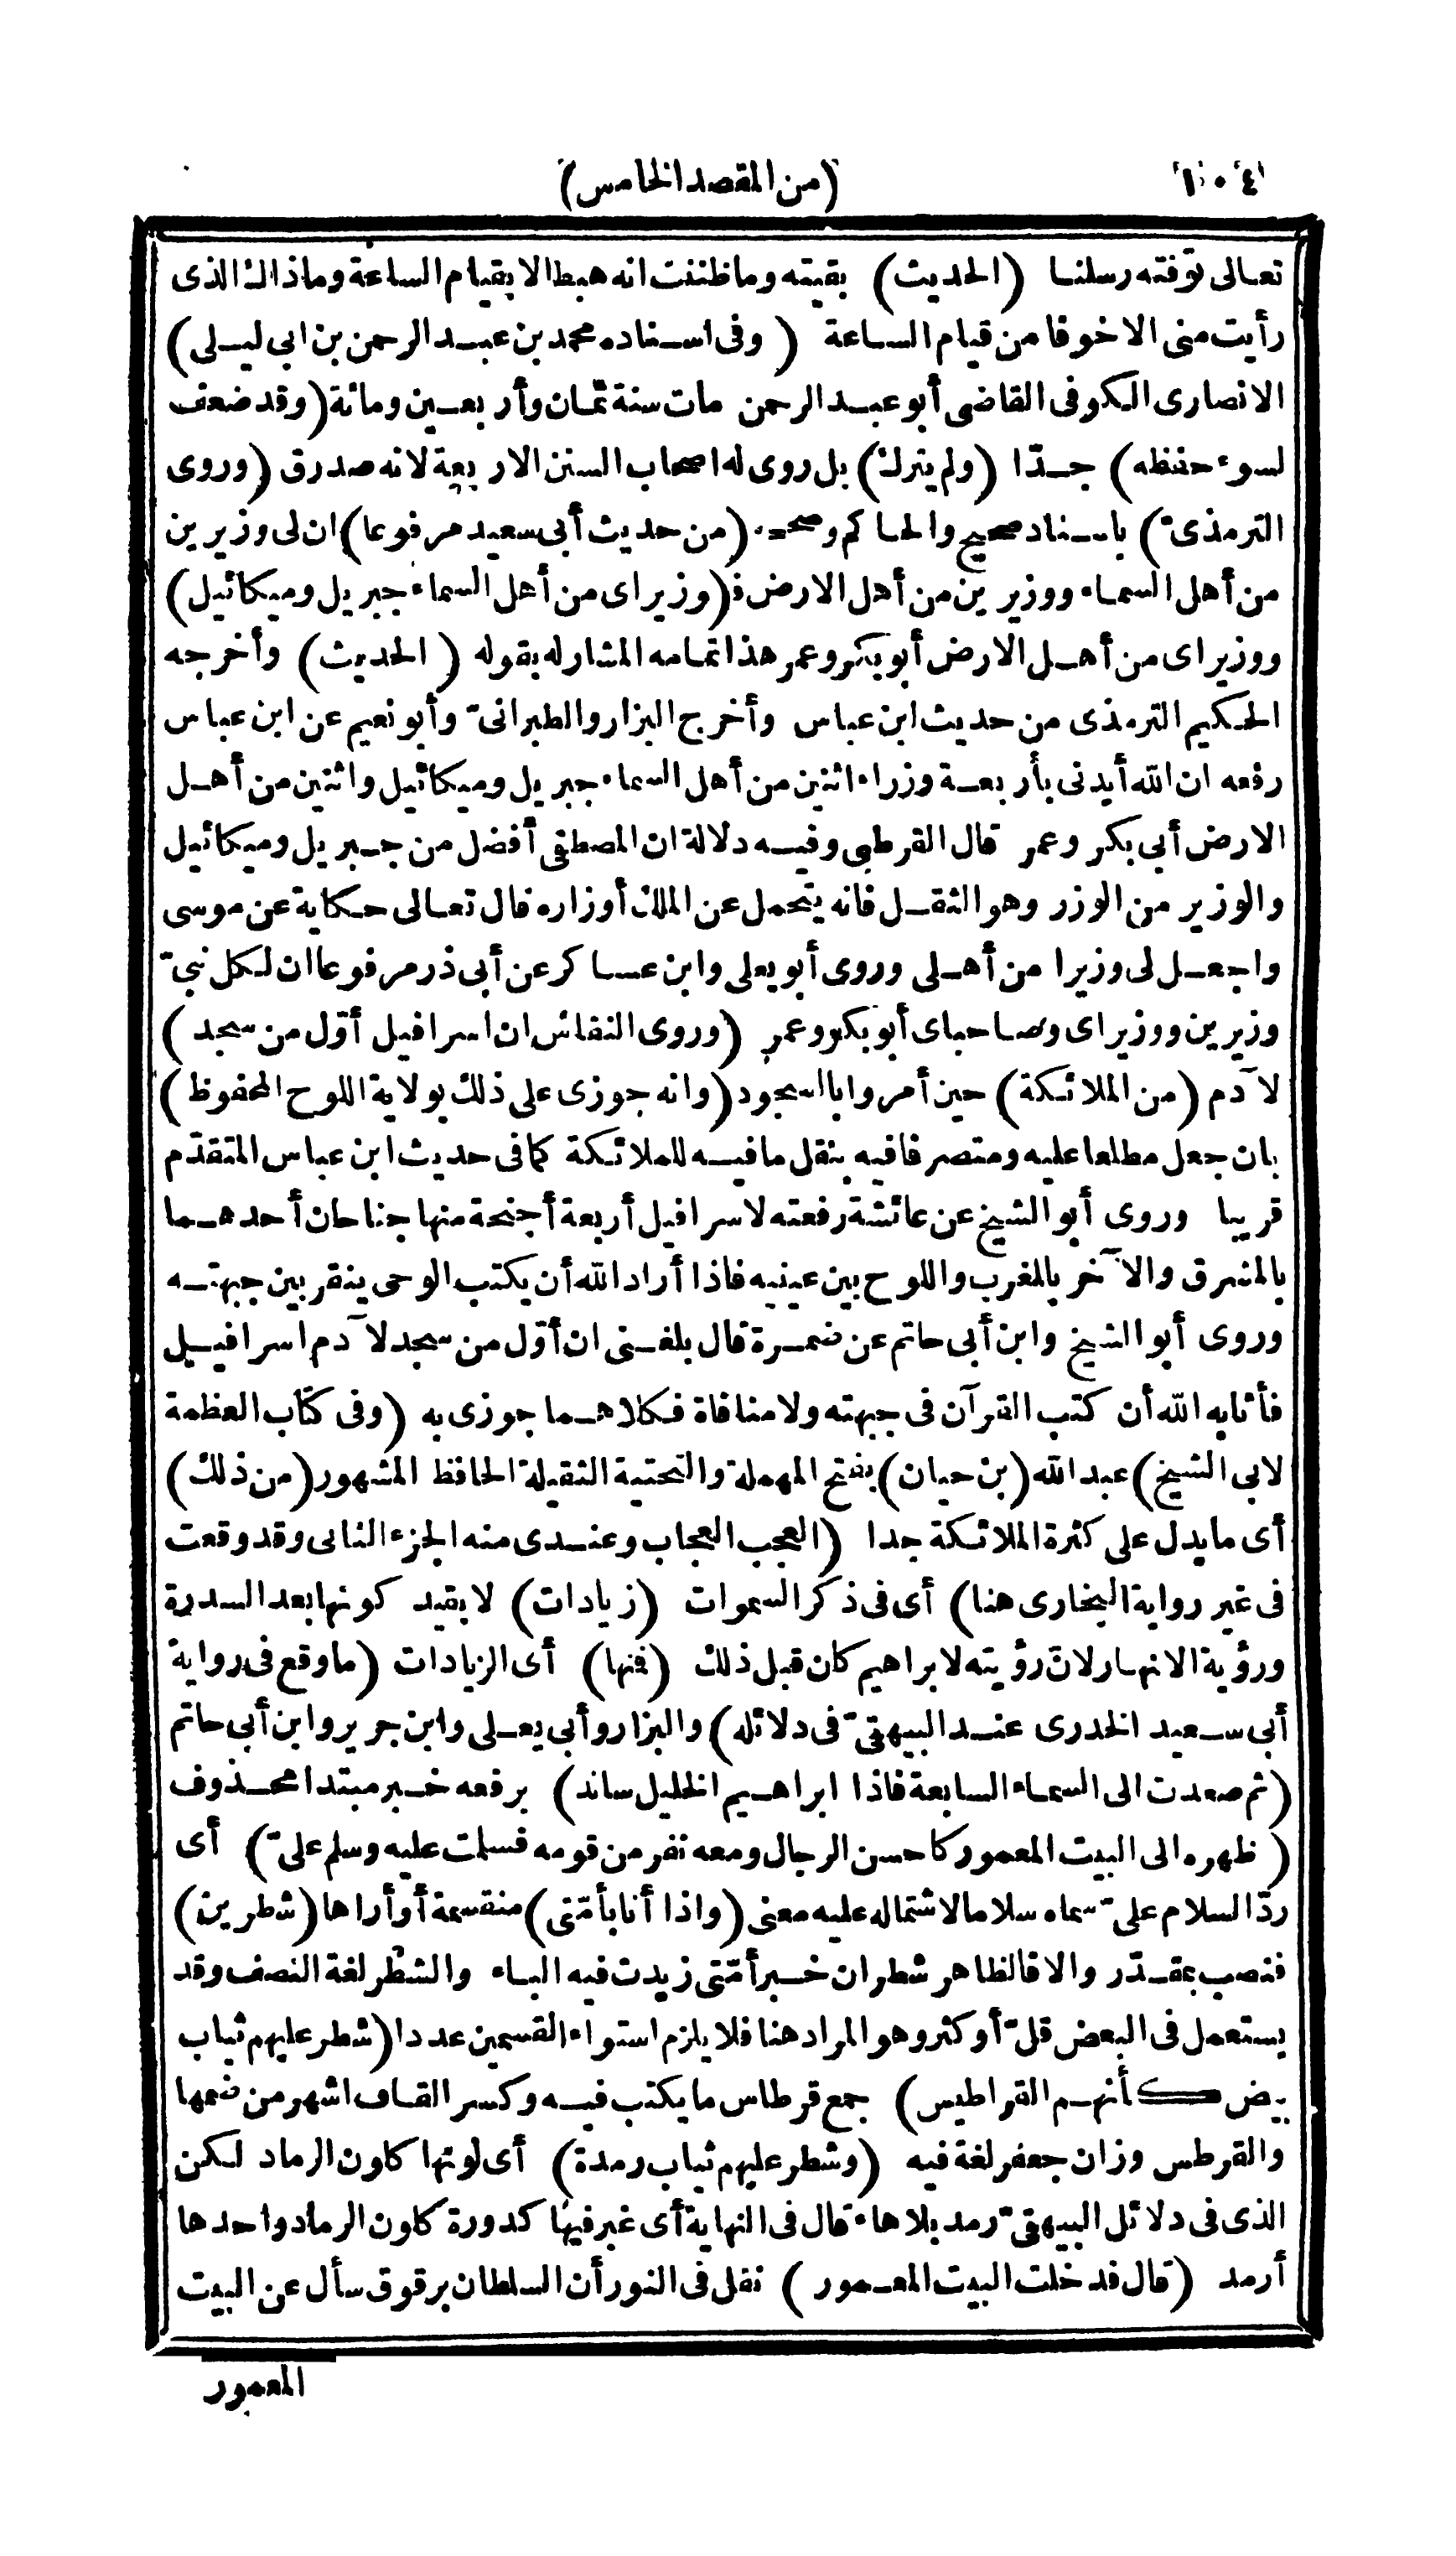 ١٠٤
(من المقصد الخامس)
تعالى توفته رسلنا (الحديث) بقيته وما ظننت انه هبط الا بقيام الساعة وما ذاك الذى
رأيت منى الا خوفا من قيام الساعة (وفى اسناده محمد بن عبد الرحمن بن ابى ليلى)
الانصارى الكوفى القاضى أبو عبد الرحمن مات سنة ثمان وأربعين ومائة (وقد ضعف
لسوء حفظه) جدّا (ولم يترك) بل روى له اصحاب السنن الاربعة لانه صدوق (وروى
الترمذىّ) باسناد صحيح والحاكم وصححه (من حديث أبى سعيد مرفوعا) ان لى وزيرين
من أهل السماء ووزيرين من أهل الارض فـ(وزيراى من أهل السماء جبريل وميكائيل)
ووزيراى من أهل الارض أبو بكر وعمر هذا تمامه المشار له بقوله (الحديث) وأخرجه
الحكيم الترمذى من حديث ابن عباس وأخرج البزار والطبرانىّ وأبو نعيم عن ابن عباس
رفعه ان الله أيدنى بأربعة وزراء اثنين من أهل السماء جبريل وميكائيل واثنين من أهل
الارض أبى بكر وعمر قال القرطبى وفيه دلالة ان المصطفى أفضل من جبريل وميكائيل
والوزير من الوزر وهو الثقل فانه يتحمل عن الملك أوزاره قال تعالى حكاية عن موسى
واجعل لى وزيرا من أهلى وروى أبو يعلى وابن عساكر عن أبى ذر مرفوعا ان لكل نبىّ
وزيرين ووزيراى وصاحباى أبو بكر وعمر (وروى النقاش ان اسرافيل أوّل من سجد)
لآدم (من الملائكة) حين أمروا بالسجود (وانه جوزى على ذلك بولاية اللوح المحفوظ)
بان جعل مطلعا عليه ومتصرفا فيه بنقل ما فيه للملائكة كما فى حديث ابن عباس المتقدّم
قريبا وروى أبو الشيخ عن عائشة رفعته لاسرافيل أربعة أجنحة منها جناحان أحدهما
بالمشرق والآخر بالمغرب واللوح بين عينيه فاذا أراد الله أن يكتب الوحى ينقر بين جبهته
وروى أبو الشيخ وابن أبى حاتم عن ضمرة قال بلغنى ان أوّل من سجد لآدم اسرافيل
فأثابه الله أن كتب القرآن فى جبهته ولا منافاة فكلاهما جوزى به (وفى كتاب العظمة
لابى الشيخ) عبد الله (بن حيان) بفتح المهملة والتحتية الثقيلة الحافظ المشهور (من ذلك)
أى ما يدل على كثرة الملائكة جدا (العجب العجاب وعندى منه الجزء الثانى وقد وقعت
فى غير رواية البخارى هنا) أى فى ذكر السموات (زيادات) لا بقيد كونها بعد السدرة
ورؤية الانهار لانّ رؤيته لابراهيم كان قبل ذلك (فمنها) أى الزيادات (ما وقع فى رواية
أبى سعيد الخدرى عند البيهقىّ فى دلائله) والبزار وأبى يعلى وابن جرير وابن أبى حاتم
(ثم صعدت الى السماء السابعة فاذا ابراهيم الخليل ساند) برفعه خبر مبتدا محذوف
(ظهره الى البيت المعمور كاحسن الرجال ومعه نفر من قومه فسلمت عليه وسلم علىّ) أى
ردّ السلام علىّ سماه سلاما لاشتماله عليه معنى (واذا أنا بأمّتى) منقسمة أو أراها (شطرين)
فنصب بمقدّر والا فالظاهر شطران خبر أمّتى زيدت فيه الباء والشطر لغة النصف وقد
يستعمل فى البعض قلّ أو كثر وهو المراد هنا فلا يلزم استواء القسمين عددا (شطر عليهم ثياب
بيض كأنهم القراطيس) جمع قرطاس ما يكتب فيه وكسر القاف اشهر من ضمها
والقرطس وزان جعفر لغة فيه (وشطر عليهم ثياب رمدة) أى لونها كلون الرماد لكن
الذى فى دلائل البيهقىّ رمد بلا هاء قال فى النهاية أى غبر فيها كدورة كلون الرماد واحدها
أرمد (قال فدخلت البيت المعمور) نقل فى النور أن السلطان برقوق سأل عن البيت
المعمور